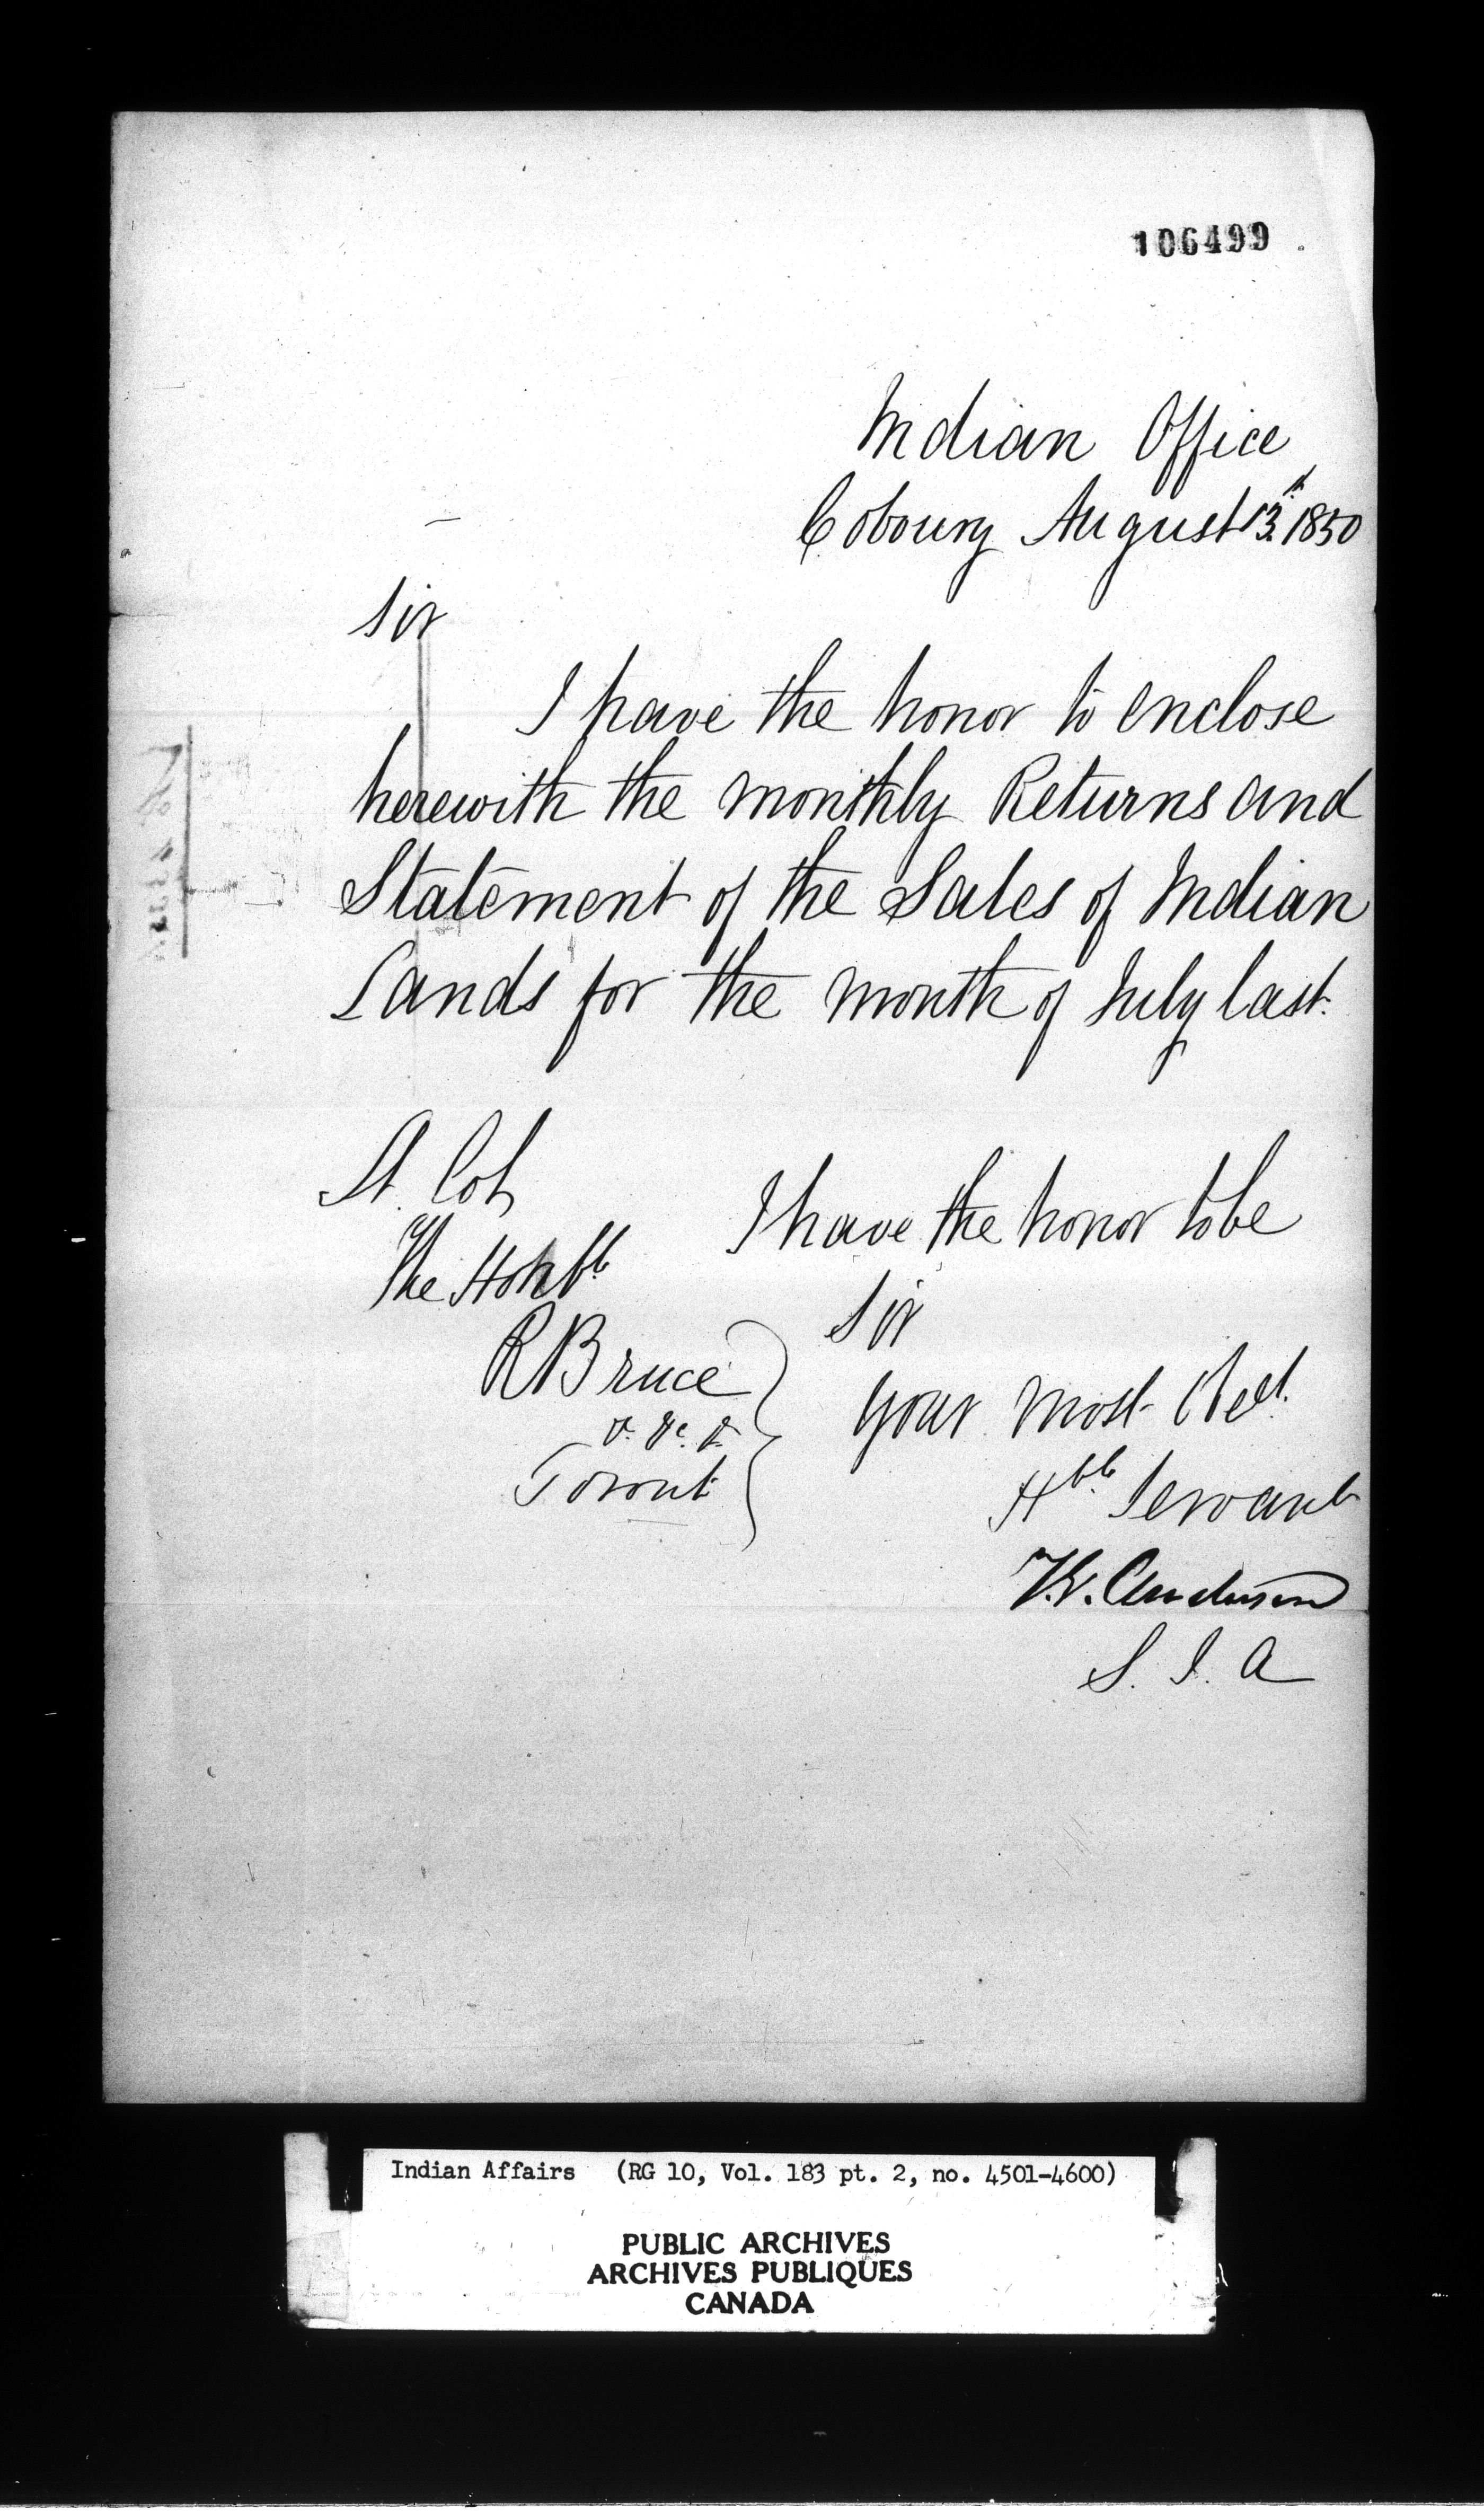 106499
Indian Office
Cobourg August 13th 1850
Sir
I have the honor to enclose
herewith the monthly Returns and
Statement of the Sales of Indian
Lands for the month of July last.
Lt. Col.
The Honble
R Bruce
&. &c. &.
Toronto
I have the honor to be
Sir
your most Obedt.
Hble Servant
T. G. Anderson
S. I. A
Indian Affairs (RG 10, Vol. 183 pt. 2, no. 4501-4600)
PUBLIC ARCHIVES
ARCHIVES PUBLIQUES
CANADA